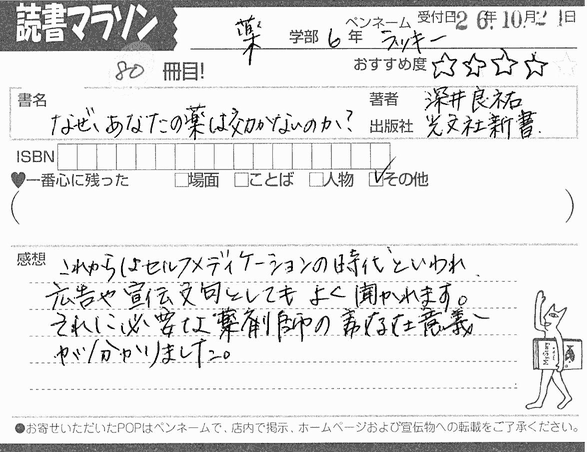 読書マラソン
薬 学部 6 年 ペンネーム ラッキー 受付日 26年10月21日
80 冊目!
おすすめ度 ☆☆☆☆☆
書名 なぜ、あなたの薬は効かないのか?
著者 深井良祐
出版社 光文社新書.
ISBN
♥一番心に残った □場面 □ことば □人物 ☑その他
( )
感想 これからはセルフメディケーションの時代といわれ、
広告や宣伝文句としてもよく聞かれます。
それに必要な薬剤師の存在意義
が分かりました。
●お寄せいただいたPOPはペンネームで、店内で掲示、ホームページおよび宣伝物への転載をご了承ください。